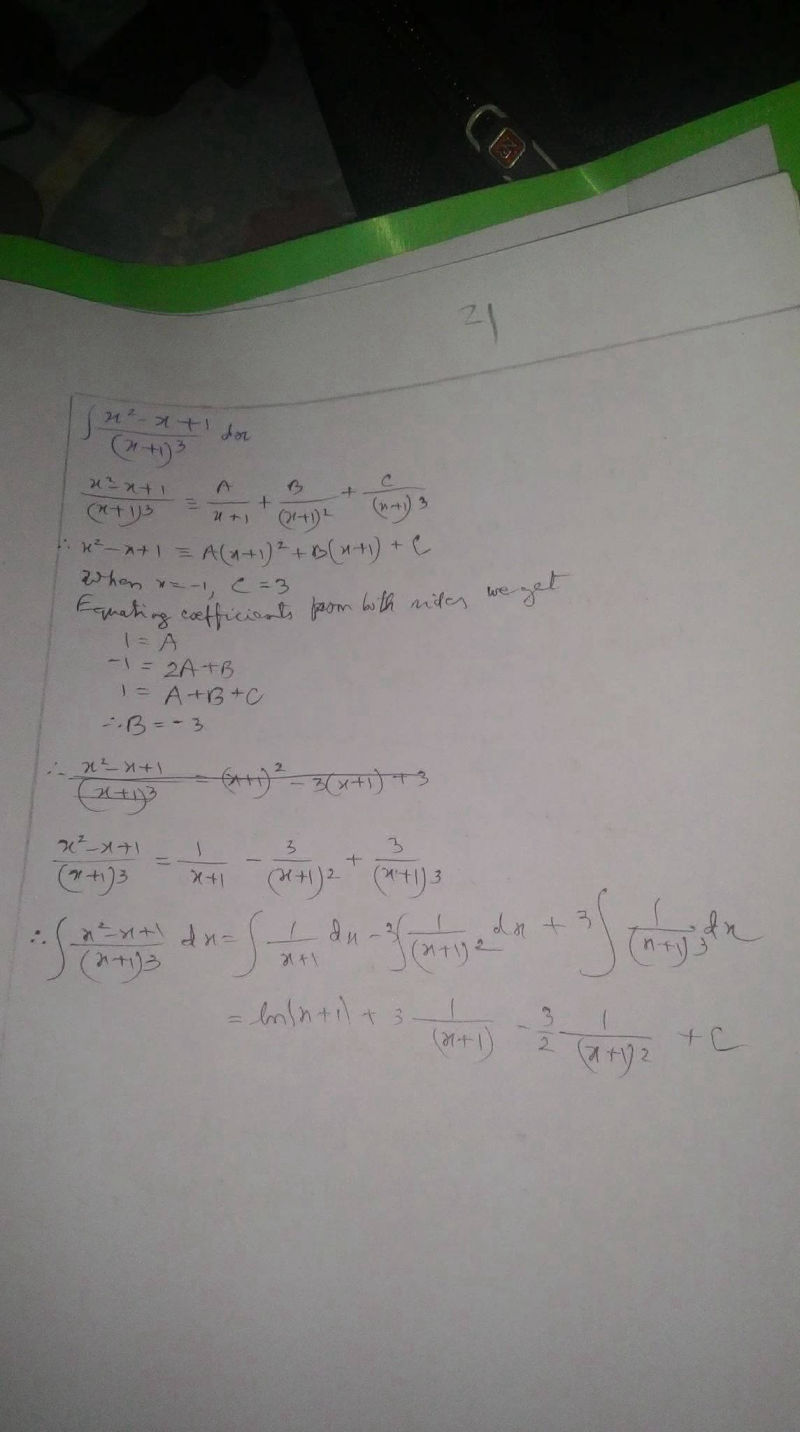 21
∫ (x² - x + 1)/(x+1)³ dx
(x² - x + 1)/(x+1)³ ≡ A/(x+1) + B/(x+1)² + C/(x+1)³
∴ x² - x + 1 ≡ A(x+1)² + B(x+1) + C
When x = -1, C = 3
Equating coefficients from both sides we get
1 = A
-1 = 2A + B
1 = A + B + C
∴ B = -3
∴ (x² - x + 1)/(x+1)³ = (x+1)² - 3(x+1) + 3
(x² - x + 1)/(x+1)³ = 1/(x+1) - 3/(x+1)² + 3/(x+1)³
∴ ∫ (x² - x + 1)/(x+1)³ dx = ∫ 1/(x+1) dx - 3∫ 1/(x+1)² dx + 3∫ 1/(x+1)³ dx
= ln|x+1| + 3 1/(x+1) - 3/2 1/(x+1)² + C